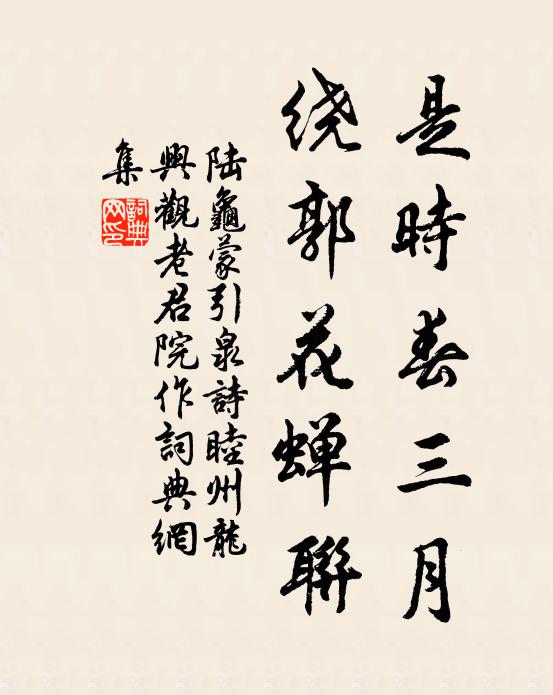 是時春三月
绕郭花蝉聯
陆龜蒙引泉詩睦州龍
興觀老君院作詞典網
集
詞典網印